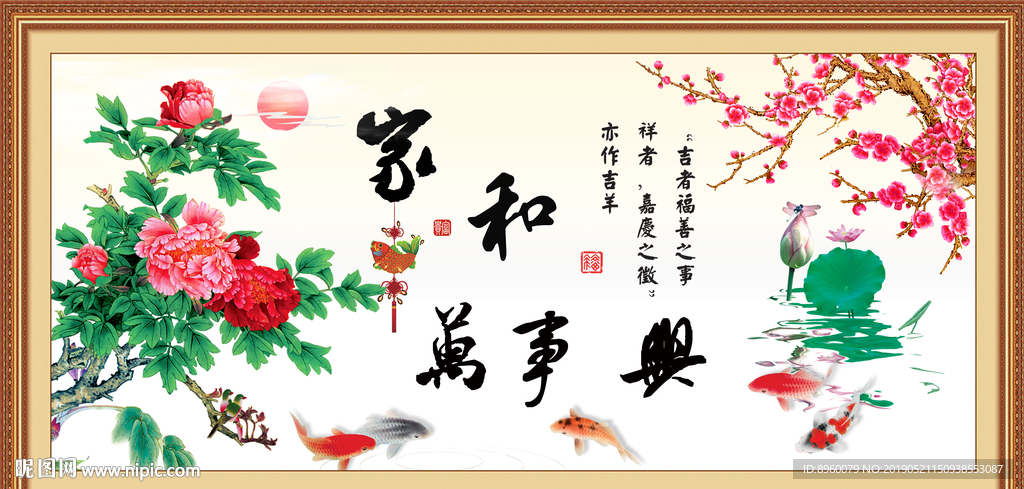 家和
萬事興
“吉者福善之事
祥者，嘉慶之徵”
亦作吉羊
昵图网 www.nipic.com
ID:8960079 NO:20190521150938553087